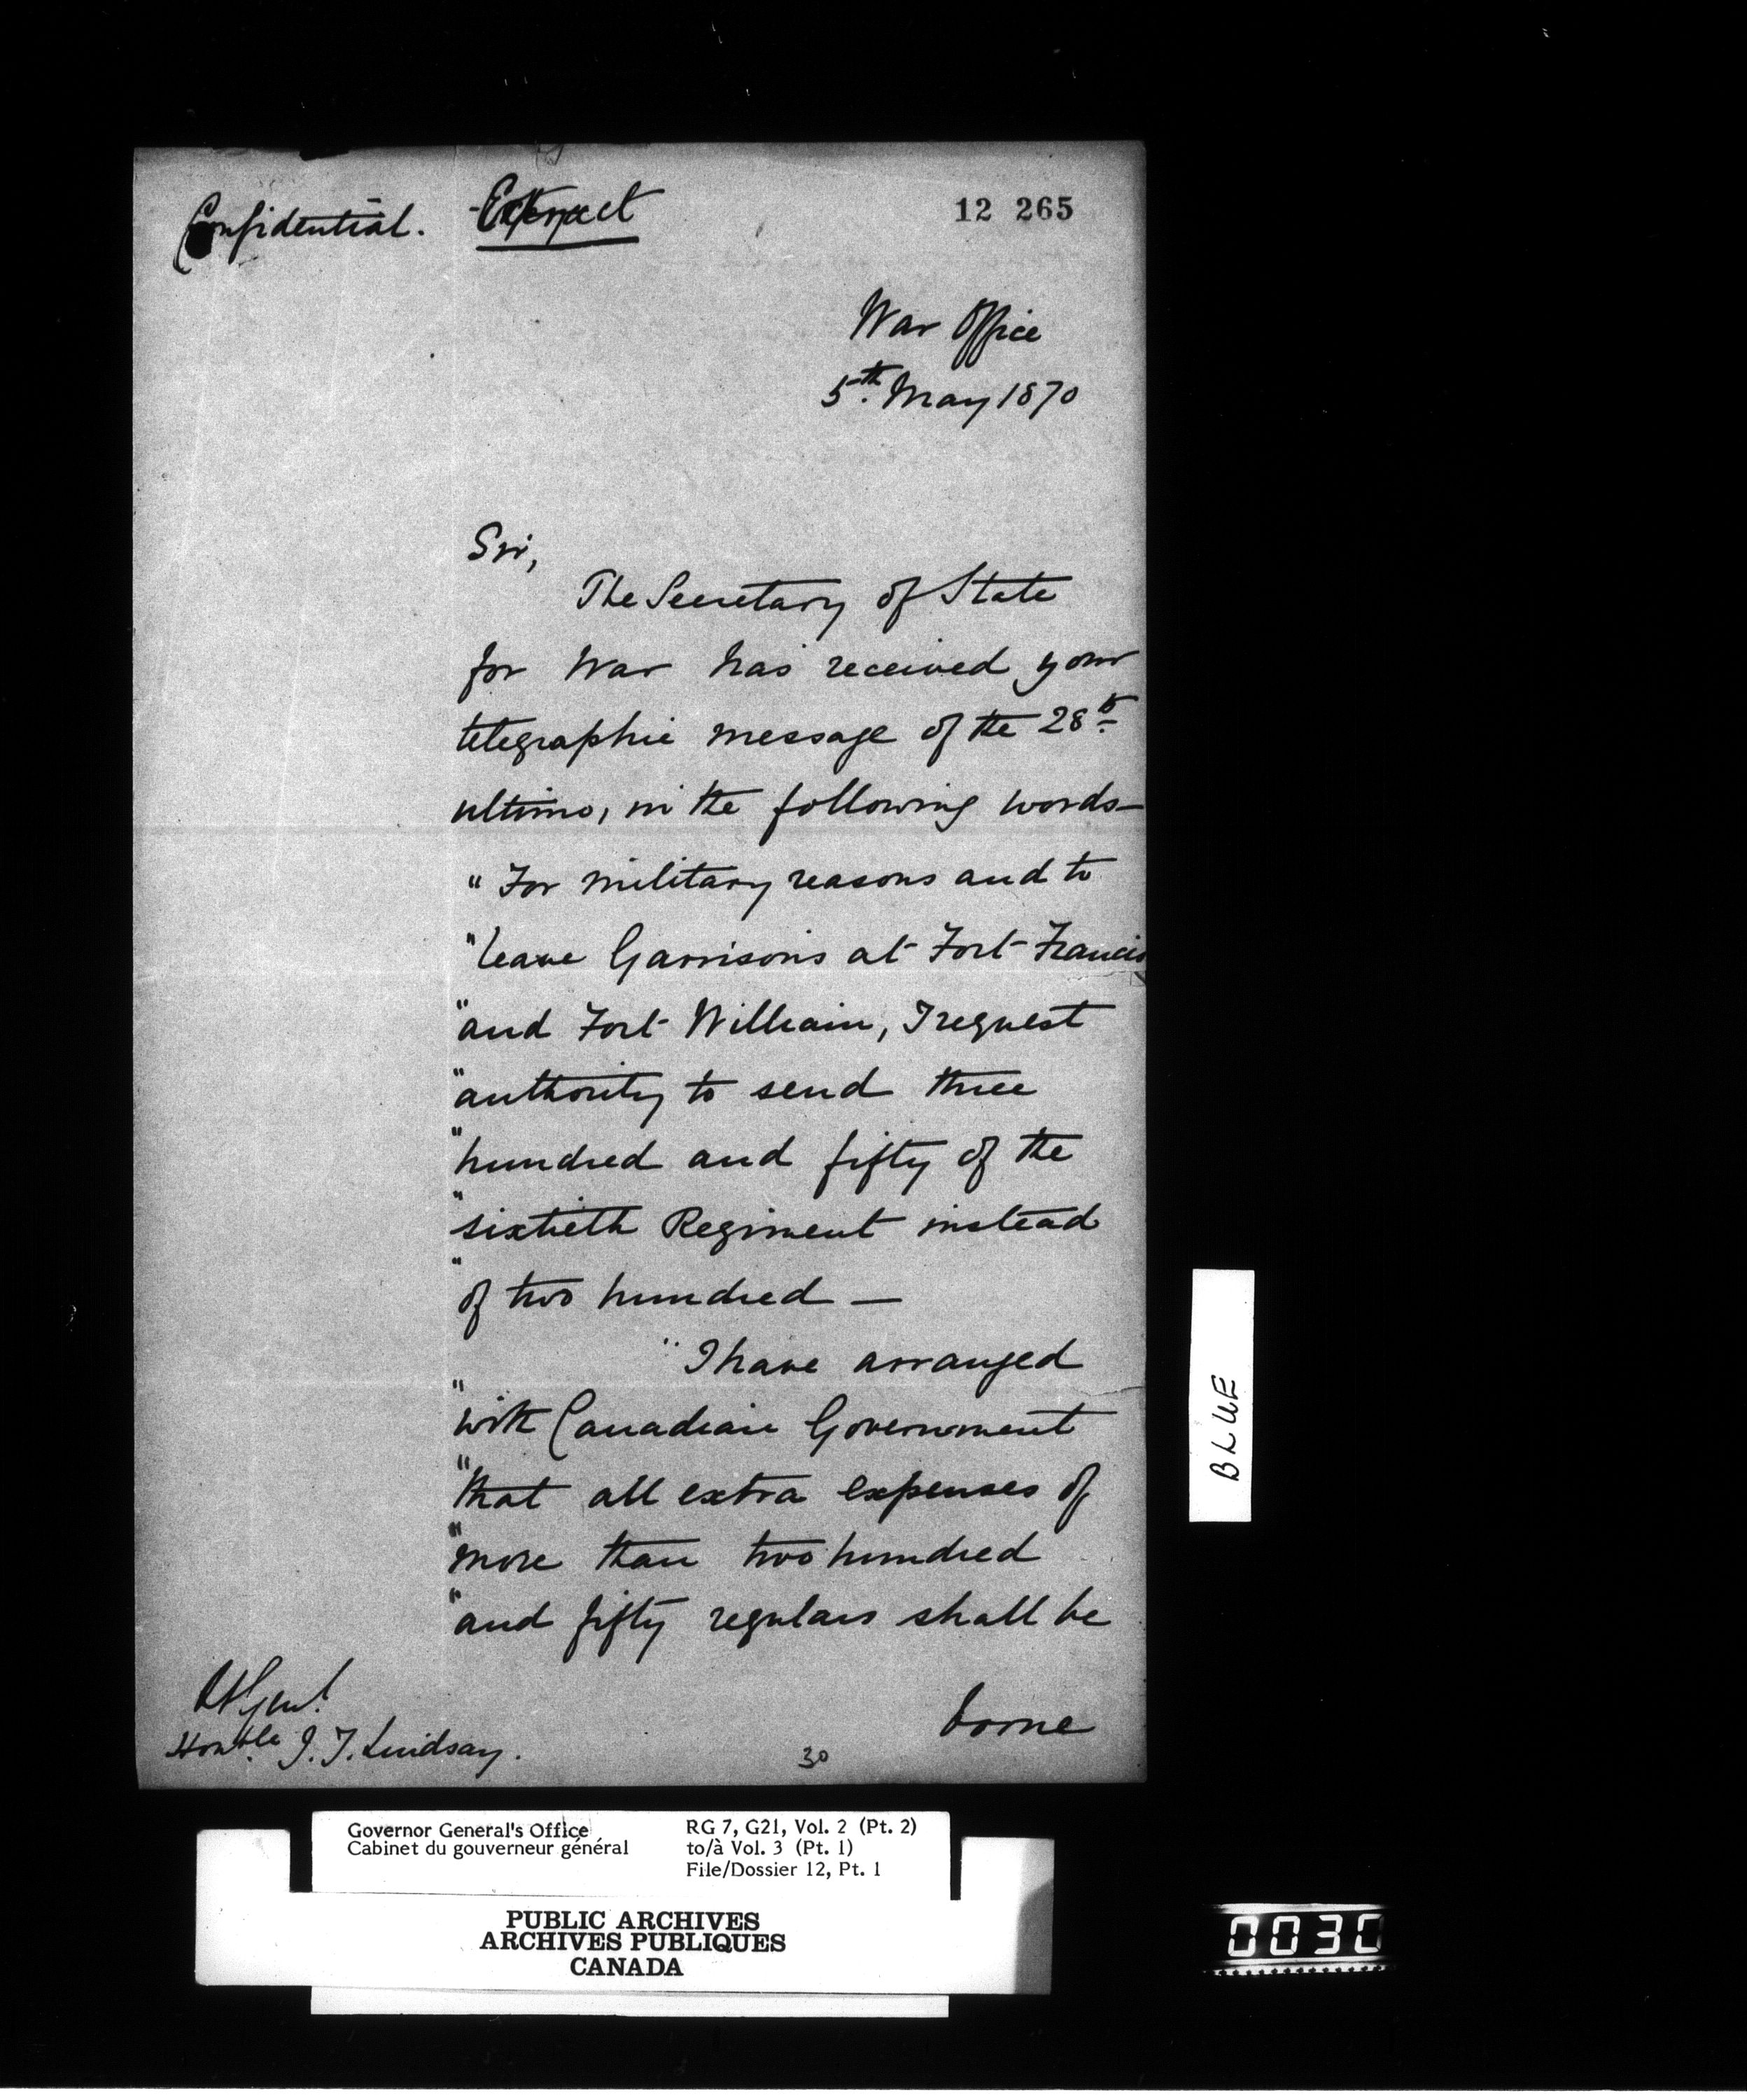 Confidential. Extract
12 265
War Office
5th. May 1870
Sir,
The Secretary of State
for War has received your
telegraphic message of the 28th.
ultimo, in the following words—
" For military reasons and to
"leave Garrisons at Fort Francis
"and Fort William, I request
"authority to send three
"hundred and fifty of the
"sixtieth Regiment instead
"of two hundred —
"I have arranged
"with Canadian Government
"that all extra expenses of
"more than two hundred
"and fifty regulars shall be
borne
Lt Genl.
Honble J. T. Lindsay.
30
BLUE
Governor General's Office
Cabinet du gouverneur général
RG 7, G21, Vol. 2 (Pt. 2)
to/à Vol. 3 (Pt. 1)
File/Dossier 12, Pt. 1
PUBLIC ARCHIVES
ARCHIVES PUBLIQUES
CANADA
0030